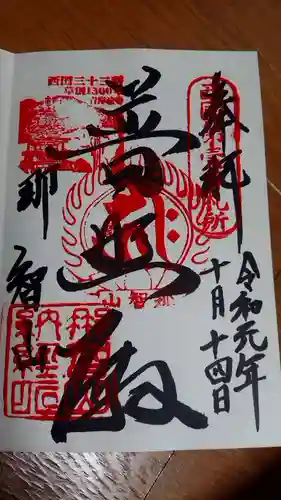 奉拝
令和元年
十月十四日
普照殿
那智山
西国三十三所
草創1300年
山智那
札所